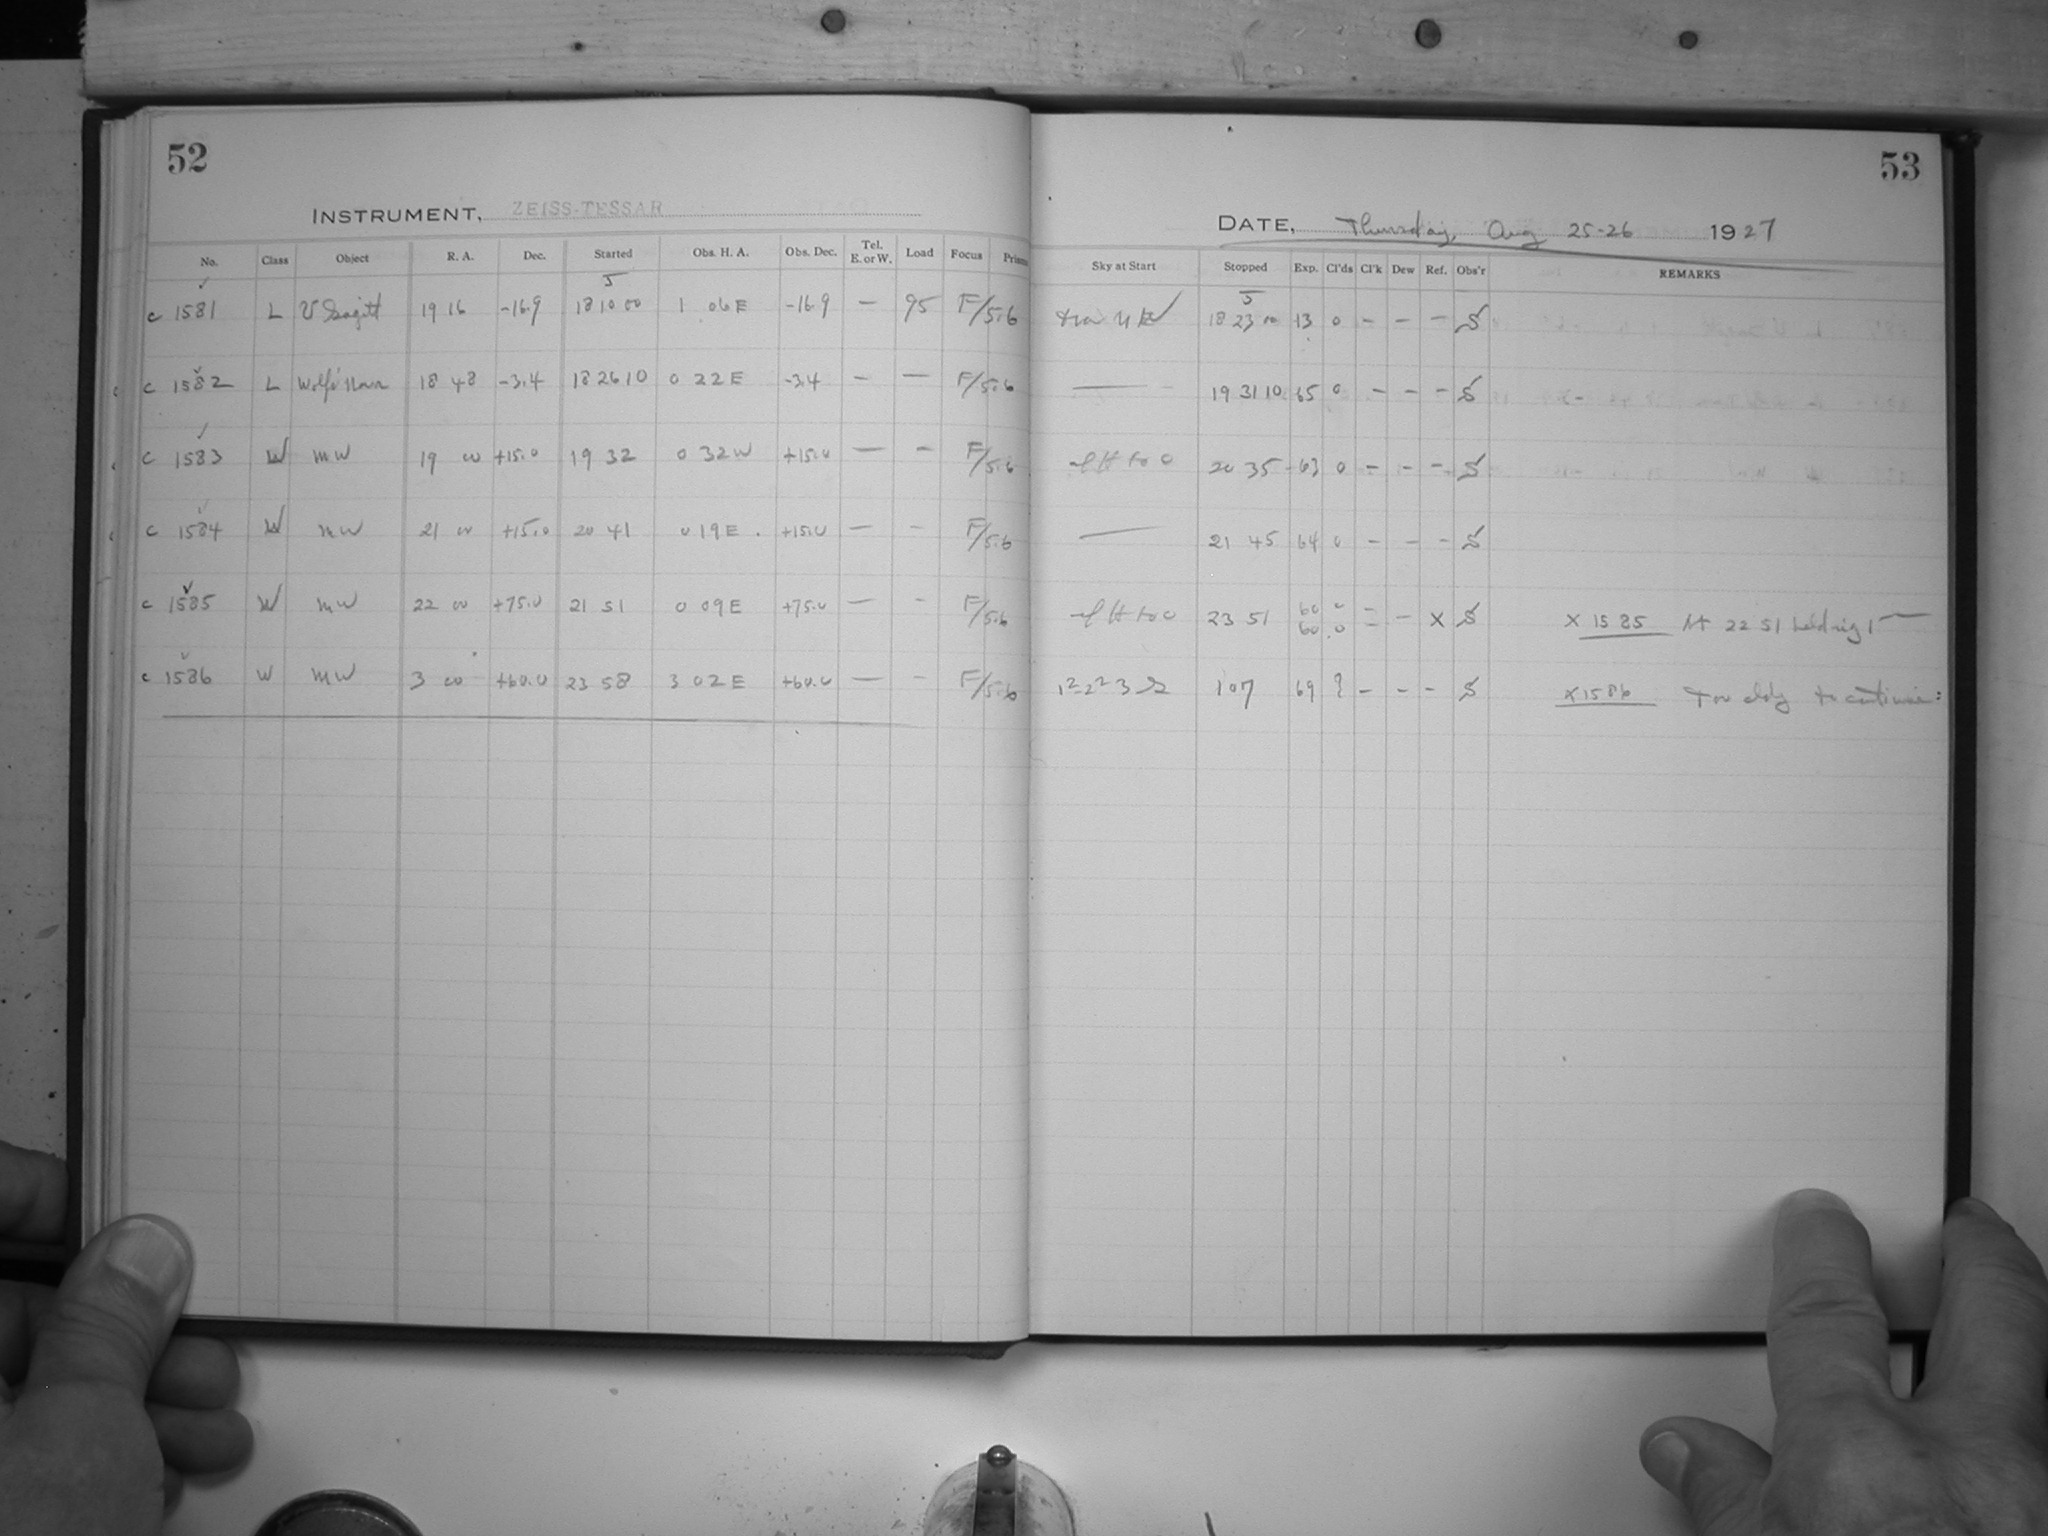 52
53
INSTRUMENT, ZEISS-TESSAR
DATE, Thursday, Aug 25-26 1927
No. Class Object R. A. Dec. Started Obs. H. A. Obs. Dec. Tel. E. or W. Load Focus Prism
Sky at Start Stopped Exp. Cl'ds Cl'k Dew Ref. Obs'r REMARKS
5
5
c 1581 L V Sagitt 19 16 -16.9 18 10 00 1 06 E -16.9 — 95 F/5.6
18 23 00 13 0 - - - S
c 1582 L Wolf's Nova 18 48 -3.4 18 26 10 0 22 E -3.4 — — F/5.6
— 19 31 10 65 0 - - - S
c 1583 W MW 19 00 +15.0 19 32 0 32 W +15.0 — - F/5.6
20 35 63 0 - - - S
c 1584 W MW 21 00 +15.0 20 41 0 19 E +15.0 — - F/5.6
— 21 45 64 0 - - - S
c 1585 W MW 22 00 +75.0 21 51 0 09 E +75.0 — - F/5.6
23 51 60 0 - - X S X 1585 At 22 51
60 0 -
c 1586 W MW 3 00 +60.0 23 58 3 02 E +60.0 — - F/5.6
1 07 69 ? - - - S X 1586 Too cldy to continue: